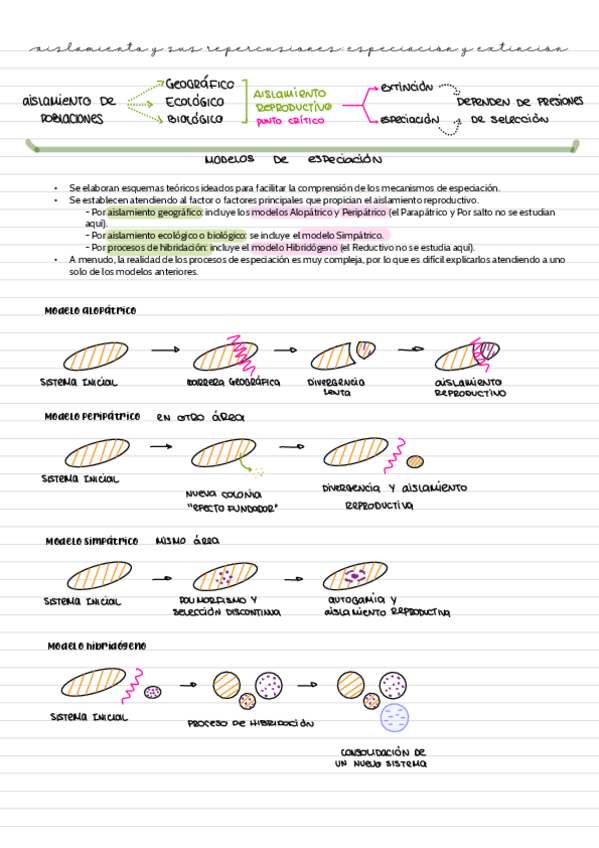 aislamiento y sus repercusiones: especiación y extinción
GEOGRÁFICO
AISLAMIENTO DE POBLACIONES
ECOLÓGICO
BIOLÓGICO
AISLAMIENTO
REPRODUCTIVO
PUNTO CRÍTICO
EXTINCIÓN
ESPECIACIÓN
DEPENDEN DE PRESIONES
DE SELECCIÓN
MODELOS DE ESPECIACIÓN
• Se elaboran esquemas teóricos ideados para facilitar la comprensión de los mecanismos de especiación.
• Se establecen atendiendo al factor o factores principales que propician el aislamiento reproductivo.
- Por aislamiento geográfico: incluye los modelos Alopátrico y Peripátrico (el Parapátrico y Por salto no se estudian
aquí).
- Por aislamiento ecológico o biológico: se incluye el modelo Simpátrico.
- Por procesos de hibridación: incluye el modelo Hibridógeno (el Reductivo no se estudia aquí).
• A menudo, la realidad de los procesos de especiación es muy compleja, por lo que es difícil explicarlos atendiendo a uno
solo de los modelos anteriores.
Modelo alopátrico
SISTEMA INICIAL
BARRERA GEOGRÁFICA
DIVERGENCIA
LENTA
AISLAMIENTO
REPRODUCTIVO
Modelo peripátrico EN OTRO ÁREA
SISTEMA INICIAL
NUEVA COLONIA
"EFECTO FUNDADOR"
DIVERGENCIA Y AISLAMIENTO
REPRODUCTIVA
Modelo simpátrico MISMO ÁREA
SISTEMA INICIAL
POLIMORFISMO Y
SELECCIÓN DISCONTINUA
AUTOGAMIA Y
AISLAMIENTO REPRODUCTIVA
Modelo hibridógeno
SISTEMA INICIAL
PROCESO DE HIBRIDACIÓN
CONSOLIDACIÓN DE
UN NUEVO SISTEMA